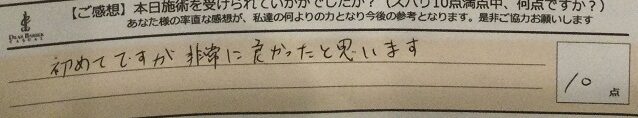 【ご感想】本日施術を受けられていかがでしたか？（ズバリ10点満点中、何点ですか？）
あなた様の率直な感想が、私達の何よりの力となり今後の参考となります。是非ご協力お願いします
初めてですが非常に良かったと思います
10点